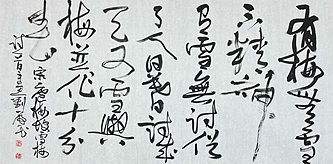 有梅無雪
不精神
有雪無詩俗
了人日暮詩成
天又雪與
梅並作十分
春
宋盧梅坡雪梅